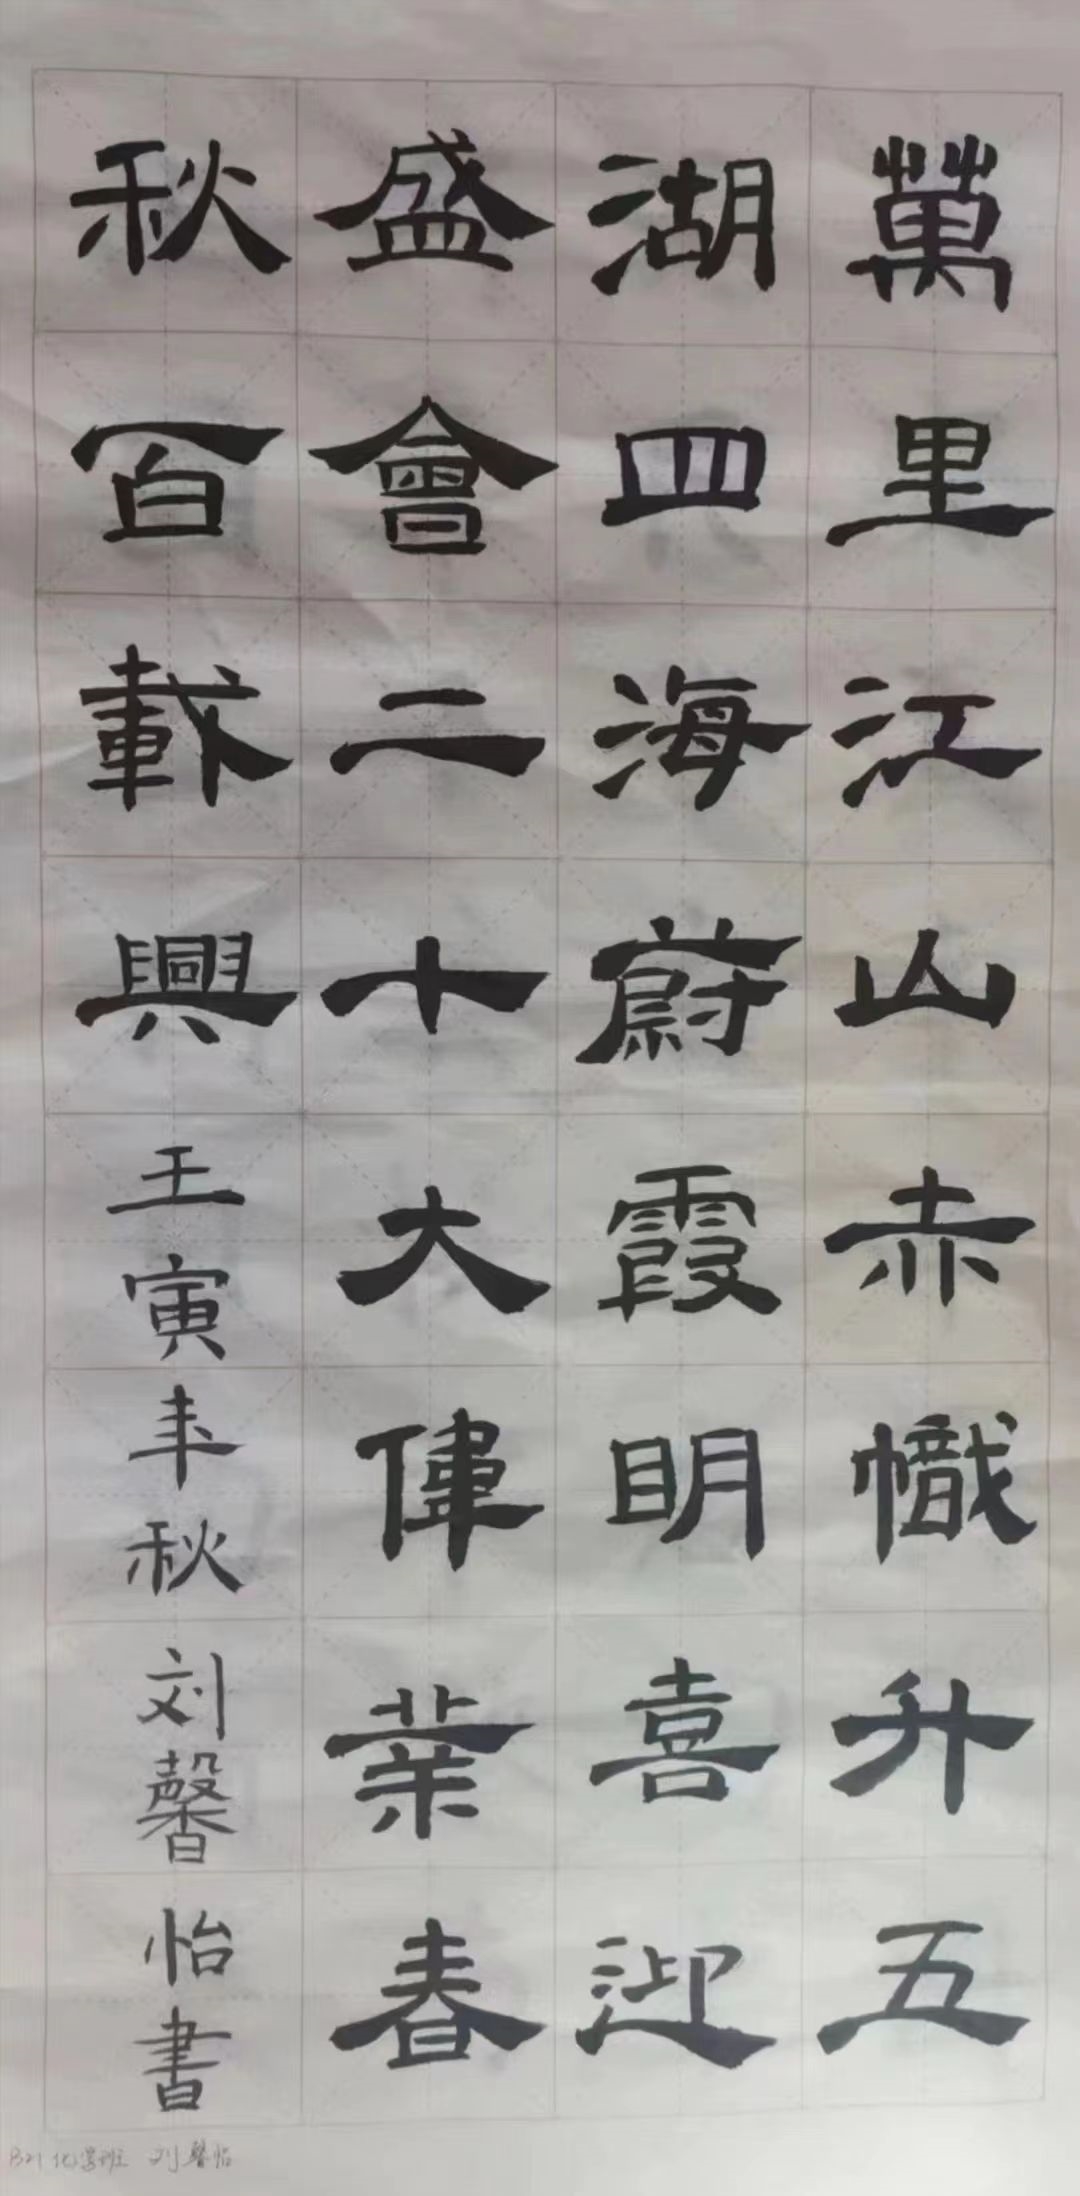 萬里江山赤幟升五
湖四海蔚霞明喜迎
盛會二十大偉業春
秋百載興王寅年秋刘馨怡書
B21化学班 刘馨怡